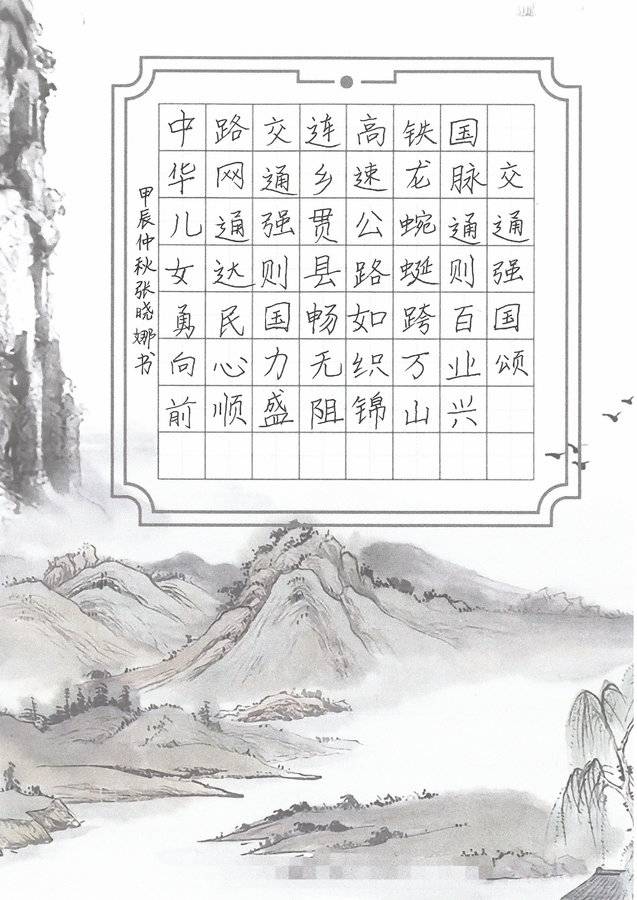 交通强国颂
国脉通则百业兴
铁龙蜿蜒跨万山
高速公路如织锦
连乡贯县畅无阻
交通强则国力盛
路网通达民心顺
中华儿女勇向前
甲辰仲秋张晓娜书